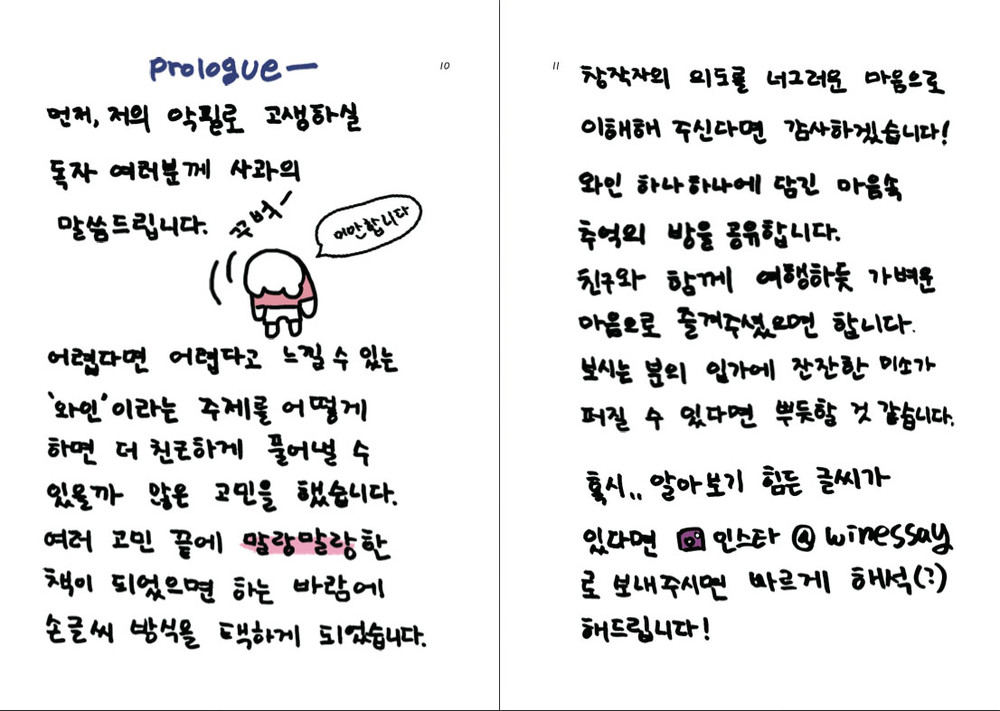 prologue—
10
먼저, 저의 악필로 고생하실
독자 여러분께 사과의
말씀드립니다.
꾸벅—
미안합니다
어렵다면 어렵다고 느낄 수 있는
'와인'이라는 주제를 어떻게
하면 더 친근하게 풀어낼 수
있을까 많은 고민을 했습니다.
여러 고민 끝에 말랑말랑한
책이 되었으면 하는 바람에
손글씨 방식을 택하게 되었습니다.
11
창작자의 의도를 너그러운 마음으로
이해해 주신다면 감사하겠습니다!
와인 하나하나에 담긴 마음속
추억의 방을 공유합니다.
친구와 함께 여행하듯 가벼운
마음으로 즐겨주셨으면 합니다.
보시는 분의 입가에 잔잔한 미소가
퍼질 수 있다면 뿌듯할 것 같습니다.
혹시.. 알아보기 힘든 글씨가
있다면 인스타 @winessay
로 보내주시면 바르게 해석(?)
해드립니다!